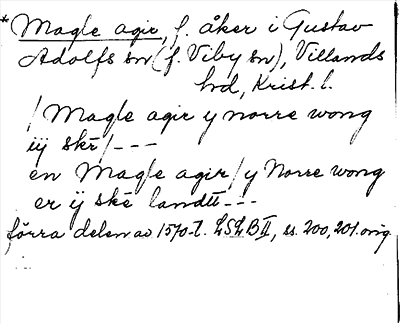 *Magle agir, f. åker i Gustav
Adolfs sn (f. Viby sn), Villands
hd, Krist. l.
/Magle agir y norre wong
iij skr/---
en Magle agir/y Norre wong
er ij skē landtt---
förra delen av 1570-t. LSLB II, ss. 200, 201. orig